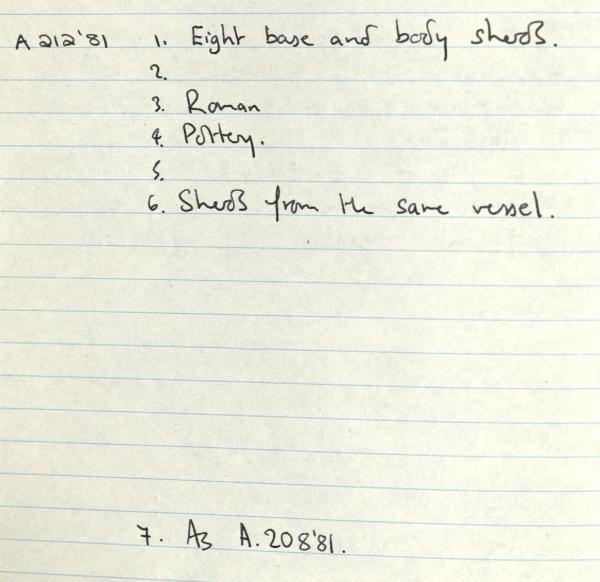 A 212'81 1. Eight base and body sherds.
2.
3. Roman
4. Pottery.
5.
6. Sherds from the same vessel.
7. As A.208'81.